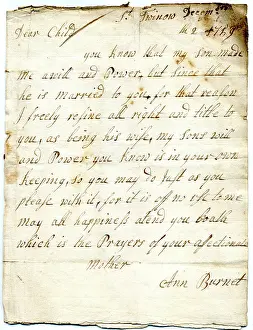 St Winnow Decembr
Dear Child the 2 1759
you know that my son made
me a will and Power, but since that
he is married to you, for that reason
I freely refine all right and title to
you, as being his wife, my Sons will
and Power you know is in your own
keeping, so you may do Just as you
please with it, for it is off no use to me
may all happiness atend you boath
which is the Prayers of your affectionate
Mother
Ann Burnet